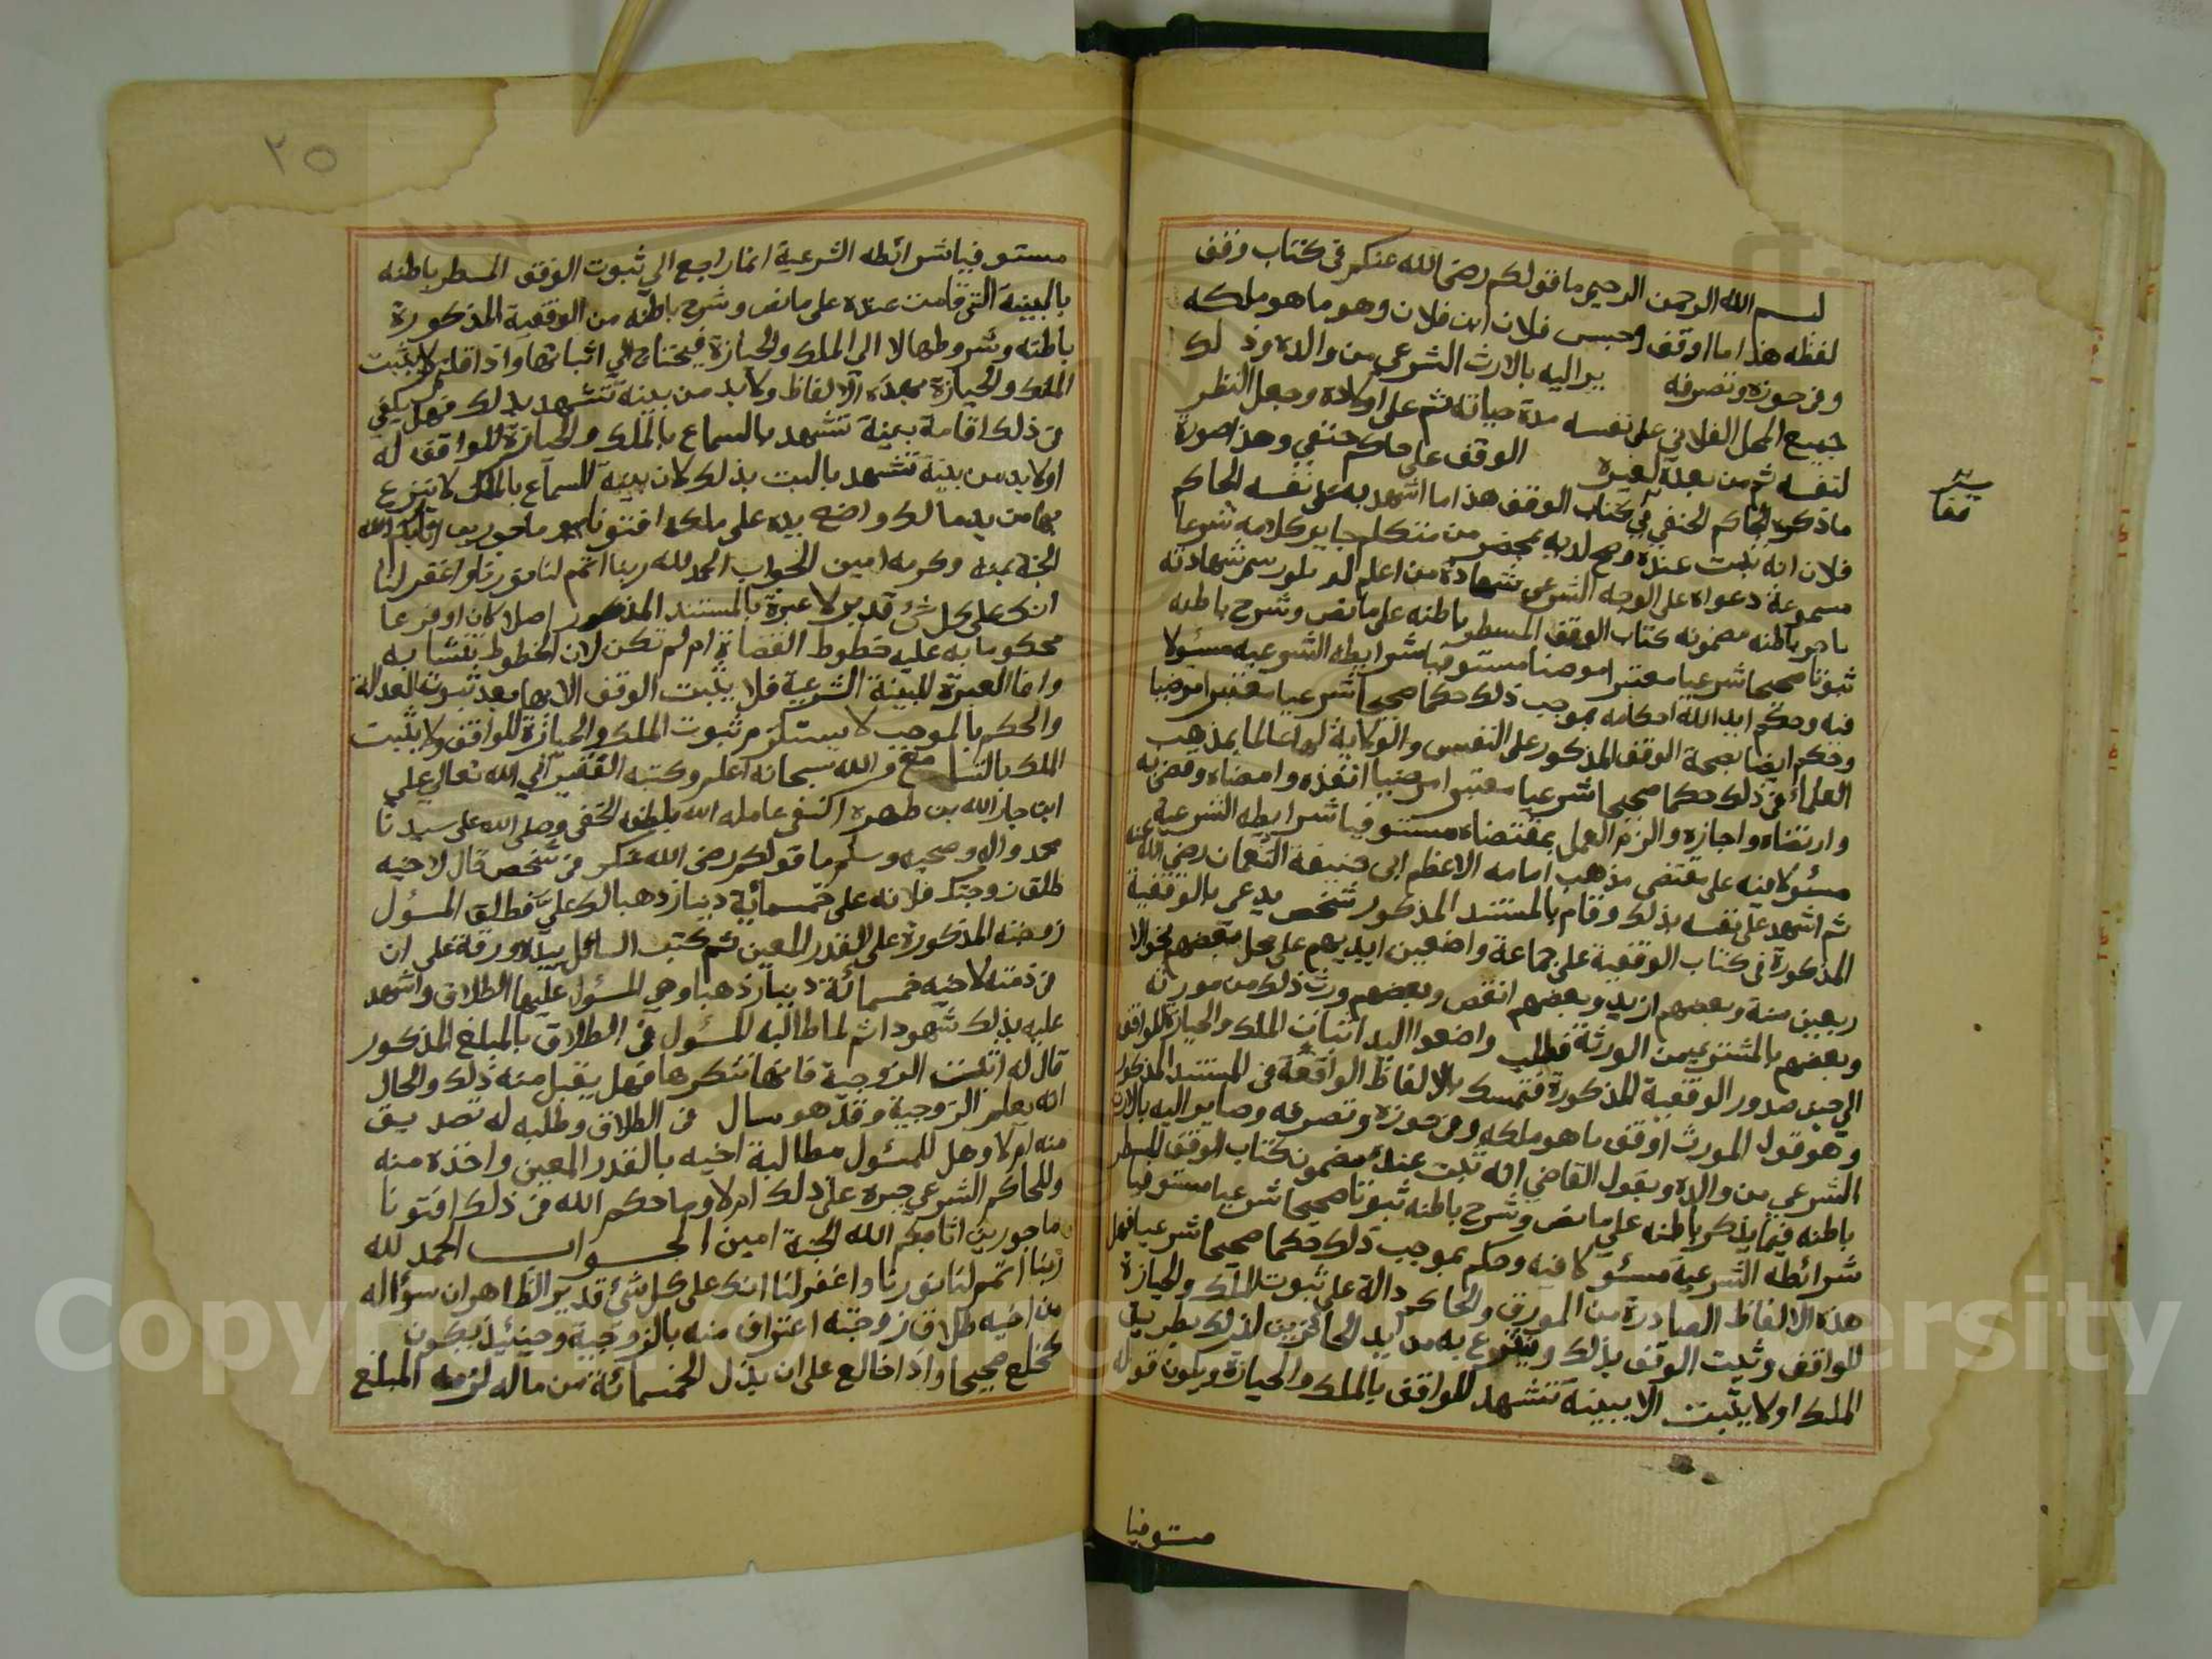 بسم الله الرحمن الرحيم ما قولكم رضي الله عنكم في كتاب وقف
لفظه هذا ما اوقف وحبس فلان ابن فلان وهو ما هو ملكه
وفي حوزه وتصرفه يراليه بالارث الشرعي من والده وذلك
جميع المحل الفلاني على نفسه مدة حياته ثم على اولاده وجعل النظر
لنفسه ثم من بعده لغيره الوقف على حاكم حنفي وهذا صورة
ما ذكره الحاكم الحنفي في كتاب الوقف هذا ما اشهد به على نفسه الحاكم
فلان انه ثبت عنده وصح لديه بمحضر من متكلم جايز كلامه شرعا
مسموعة دعواه على الوجه الشرعي شهادة من اعلم له تلو رسم شهادته
باخر باطنه مضمونه كتاب الوقف المسطر باطنه على ما نص وشرح باطنه
ثبوتا صحيحا شرعيا معتبرا مرضيا مستوفيا شرايطه الشرعيه مسئولا
فيه وحكم ايد الله احكامه بموجب ذلك حكما صحيحا شرعيا معتبرا مرضيا
وحكم ايضا بصحة الوقف المذكور على النفس والولاية لها عالما بمذهب
العلماء في ذلك حكما صحيحا شرعيا معتبرا مرضيا انفذه وامضاه وقضى به
وارتضاه واجازه والزم العمل بمقتضاه مستوفيا شرايطه الشرعيه
مسئولا فيه على مقتضى مذهب امامه الاعظم ابى حنيفة النعمان رضي الله عنه
ثم اشهد على نفسه بذلك وقام بالمستند المذكور شخص يدعى بالوقفية
المذكورة في كتاب الوقفية على جماعة واضعين ايديهم على محل بعضهم نحو الا
ربعين سنة وبعضهم ازيد وبعضهم انقص وبعضهم ورث ذلك من مورثه
وبعضهم بالمشترى من الورثة فطلب واضعوا اليد اثبات الملك والحيازة للواقف
الي حين صدور الوقفية المذكورة فتمسك بالالفاظ الواقعة في المستند المذكور
وهو قول المورث اوقف ما هو ملكه وفي حوزه وتصرفه وصاير اليه بالارث
الشرعي من والده وبقول القاضي انه ثبت عنده مضمون كتاب الوقف المسطر
باطنه فيما يذكر باطنه على ما نص وشرح باطنه ثبوتا صحيحا شرعيا مستوفيا
شرائطه الشرعية مسئولا فيه وحكم بموجب ذلك حكما صحيحا شرعيا فهل
هذه الالفاظ الصادرة من المورق والحاكم دالة على ثبوت الملك والحيازة
للواقف وثبت الوقف بذلك وينتزع به من ايد الحائزين لذلك بطريق
الملك او لا يثبت الا ببينة تشهد للواقف بالملك والحيازة ويكون قوله
مستوفيا
قف
٢٥
مستوفيا شرائطه الشرعية انما راجع الى ثبوت الوقف المسطر باطنه
بالبينة التي قامت عنده على ما نص وشرح باطنه من الوقفية المذكورة
باطنه وشروطها لا الى الملك والحيازة فيحتاج الي اثباتها واذا قلتم لا يثبت
الملك والحيازة بهذه الالفاظ ولا بد من بينة تشهد بذلك فهل يكفي
في ذلك اقامة بينة تشهد بالسماع بالملك والحيازة للواقف له
او لا بد من بينة تشهد بالبت بذلك لان بينة السماع بالملك لا ينزع
بها من يد مالك واضع يده على ملكه افتونا ماجورين اثابكم الله
الجنة بمنه وكرمه امين الجواب الحمد لله ربنا اتمم لنا نورنا واغفر لنا
انك على كل شئ قدير لا عبرة بالمستند المذكور اصلا كان او فرعا
محكوما به عليه خطوط القضاة ام لم تكن لان الخطوط تتشابه
وانما العبرة للبينة الشرعية فلا يثبت الوقف الا بها بعد ثبوت العدالة
والحكم بالموجب لا يستلزم ثبوت الملك والحيازة للواقف ولا يثبت
الملك بالتسامع والله سبحانه اعلم وكتبه الفقير الي الله تعالى علي
ابن جار الله بن ظهيرة الحنفي عامله الله بلطفه الخفي وصلى الله على سيدنا
محمد واله وصحبه وسلم ما قولكم رضي الله عنكم في شخص قال لاخيه
طلق زوجتك فلانه على خمسمائة دينار ذهبا لك علي فطلق المسؤل
زوجته المذكورة على القدر المعين ثم كتب السائل بيده ورقة على ان
في ذمته لاخيه خمسمائة دينار ذهبا وهي المسؤل عليها الطلاق واشهد
عليه بذلك شهودا ثم لما طالبه المسؤل في الطلاق بالمبلغ المذكور
قال له اثبت الزوجية فانها تنكرها فهل يقبل منه ذلك والحال
انه يعلم الزوجية وقد هو سال في الطلاق وطلبه له تصديق
منه ام لا وهل للمسؤل مطالبة اخيه بالقدر المعين واخذه منه
وللحاكم الشرعي جبره على ذلك ام لا وما حكم الله في ذلك افتونا
ماجورين اثابكم الله الجنة امين الجواب الحمد لله
ربنا اتمم لنا نورنا واغفر لنا انك على كل شئ قدير الظاهر ان سؤاله
من اخيه طلاق زوجته اعتراف منه بالزوجية وحينئذ يكون
الخلع صحيحا واذا خالع على ان بذل الخمسمائة من ماله لزمه المبلغ
Copyright © King Saud University